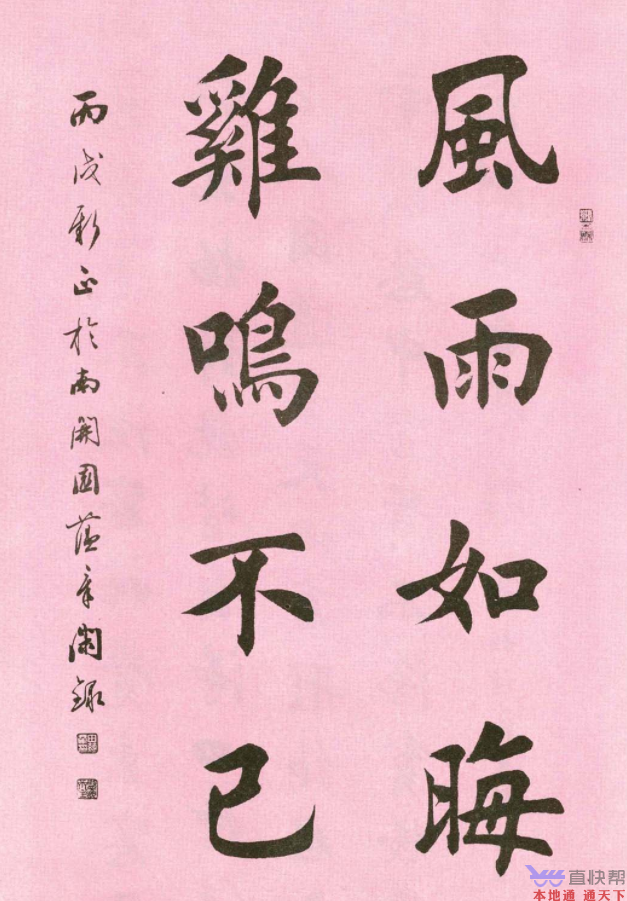 風雨如晦
雞鳴不已
丙戌新正於南開園蘊章錄
直快帮
本地通 通天下